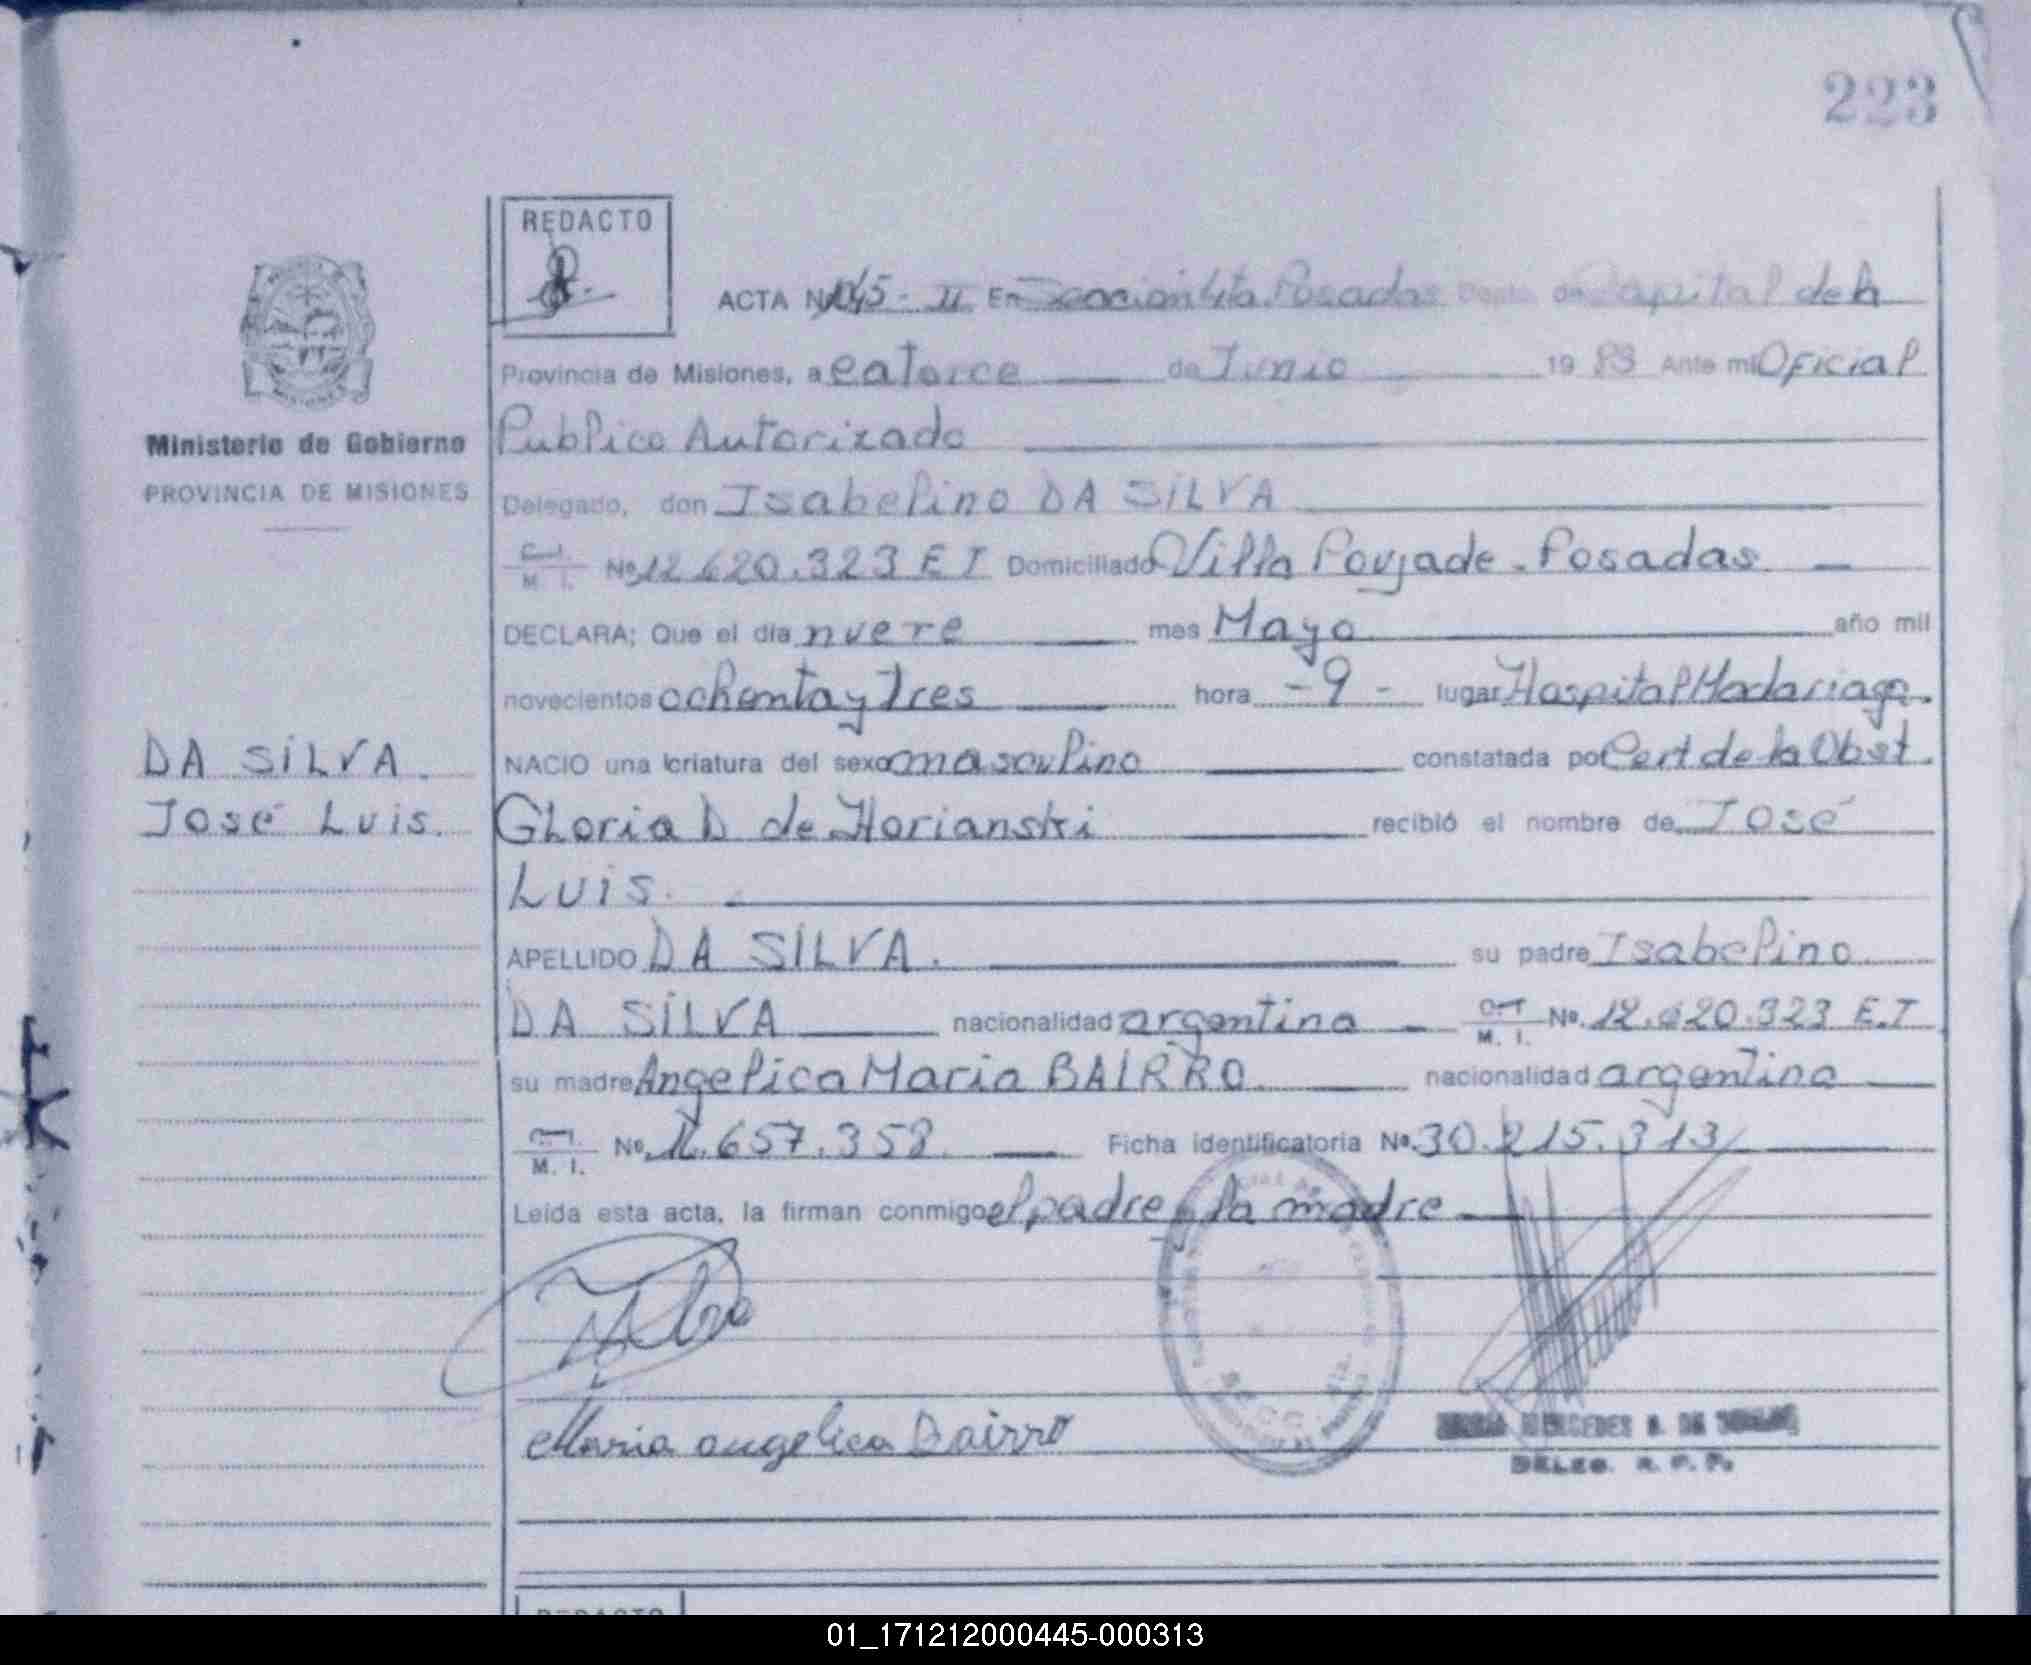 223
REDACTO
ACTA Nº 1045 - II En Sección 4ta Posadas Dpto. de Capital de la
Provincia de Misiones, a catorce de Junio 19 83 Ante mi Oficial
Ministerio de Gobierno
Publico Autorizado
PROVINCIA DE MISIONES
Delegado, don Isabelino DA SILVA
C. I. M. I. Nº 12.620.323 E T Domiciliado Villa Poujade - Posadas
DECLARA; Que el día nueve mes Mayo año mil
novecientos ochenta y Tres hora - 9 - lugar Hospital Madariaga.
DA SILVA.
NACIO una criatura del sexo masculino constatada por Cert de la Obst.
José Luis.
Gloria D de Horianski recibió el nombre de José
Luis.
APELLIDO DA SILVA. su padre Isabelino
DA SILVA nacionalidad argentina M. I. Nº. 12.620.323 E.T
su madre Angelica Maria BAIRRO nacionalidad argentina
M. I. Nº 657.358. Ficha identificatoria Nº. 30.215.313
Leída esta acta, la firman conmigo el padre y la madre
Maria angelica Bairro
MERCEDES
DELEG. R. P. P.
REDACTO
01_171212000445-000313